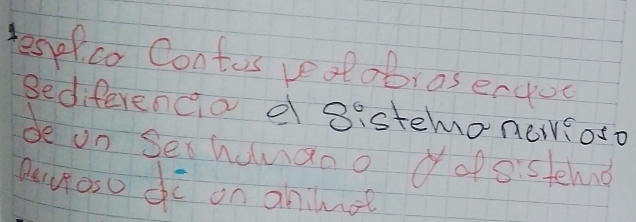 *espl.co Contus palabras enque
Sediferencia el Sistema nervioso
de un Ser humano y el sistema
nervioso de un animal